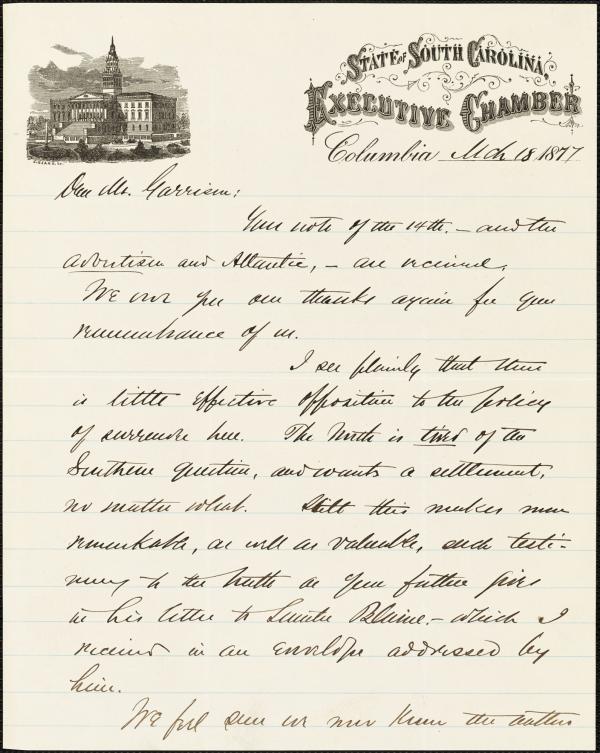 STATE of SOUTH CAROLINA,
EXECUTIVE CHAMBER
Columbia Mch 18 1877
Dear Mr. Garrison:
Your note of the 14th. – and the
Advertiser and Atlantic, – are received.
We owe you our thanks again for your
remembrance of us.
I see plainly that there
is little effective opposition to the policy
of surrender here. The North is tired of the
Southern question, and wants a settlement,
no matter what. Still this makes more
remarkable, as well as valuable, such testi-
mony to the truth as your father gives
in his letter to Senator Blaine. – which I
received in an envelope addressed by
him.
We feel sure we now know the author